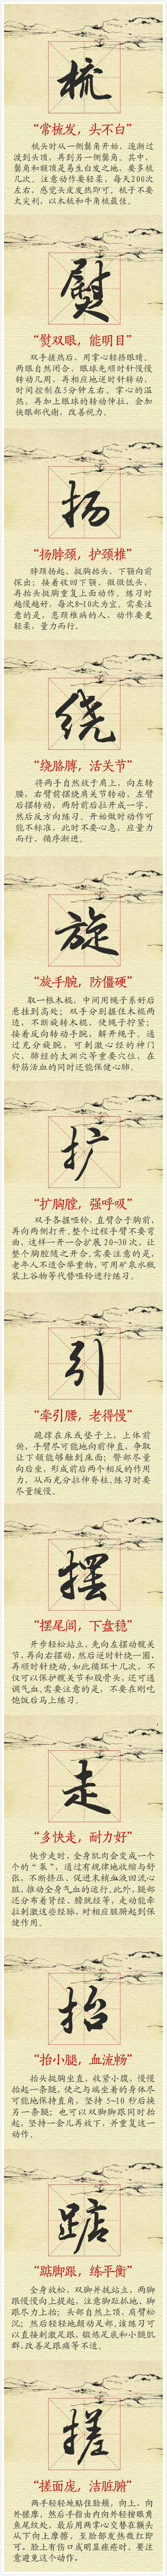 梳
“常梳发，头不白”
梳头时从一侧鬓角开始，逐渐过
渡到头顶，再到另一侧鬓角。其中，
鬓角和额顶是易生白发之地，要多梳
几次。注意动作要轻柔，每天200次
左右，感觉头皮发热即可。梳子不要
太尖利，以木梳和牛角梳最佳。
熨
“熨双眼，能明目”
双手搓热后，用掌心轻捂眼睛。
两眼自然闭合，眼球先顺时针慢慢
转动几周，再相应地逆时针转动，
时间控制在5分钟左右。掌心的温
热，再加上眼球的转动伸拉，会加
快眼部代谢，改善视力。
扬
“扬脖颈，护颈椎”
脖颈扬起、挺胸抬头，下颚向前
探出；接着收回下颚，微微低头，
再抬头挺胸重复上面动作。练习时
越慢越好，每次8~10次为宜。需要注
意的是，患颈椎病的人，动作要更
轻柔，量力而行。
绕
“绕胳膊，活关节”
将两手自然放于肩上，向左转
腰，右臂前摆绕肩关节转动，左臂
后摆转动，两肘前后拉开成一字，
然后反方向练习。开始做时动作可
能不标准，此时不要心急，应量力
而行、循序渐进。
旋
“旋手腕，防僵硬”
取一根木棍，中间用绳子系好后
悬挂到高处；双手分别握住木棍两
边，不断旋转木棍，使绳子拧紧；
接着反向转动手腕，解开绳子。通
过充分旋腕，可刺激心经的神门
穴、肺经的太渊穴等重要穴位，在
舒筋活血的同时还能保健心肺。
扩
“扩胸膛，强呼吸”
双手各握哑铃，直臂合于胸前，
再向两侧打开，整个过程手臂不要弯
曲。这样一开一合扩展20~30次，让
整个胸腔随之开合。需要注意的是，
老年人不适合举重物，可用矿泉水瓶
装上谷物等代替哑铃进行练习。
引
“牵引腰，老得慢”
跪撑在床或垫子上，上体前
俯，手臂尽可能地向前伸直，争取
让下颌能够触到床面；臀部尽量
向后坐，形成前后两个相反的作用
力，从而充分拉伸脊柱，练习时要
尽量缓慢。
摆
“摆尾闾，下盘稳”
开步轻松站立，先向左摆动髋关
节，再向右摆动，然后逆时针绕一圈，
再顺时针绕动，如此循环十几次。不
仅可以保护髋关节和股骨头，还可通
调气血，需要注意的是，不要在刚吃
饱饭后马上练习。
走
“多快走，耐力好”
快步走时，全身肌肉会变成一个
个的“泵”，通过有规律地收缩与舒
张，不断挤压、促进末梢血液回流心
脏，推动全身气血的运行。此外，腿部
还分布着肾经、膀胱经等，走动能牵
拉刺激这些经脉，对相应脏腑起到保
健作用。
抬
“抬小腿，血流畅”
抬头挺胸坐直，收紧小腹，慢慢
抬起一条腿，使之与端坐着的身体尽
可能地保持直角，坚持 5~10 秒后换
另一条腿；也可以双脚脚跟同时抬
起，坚持一会儿再放下，并重复这一
动作。
踮
“踮脚跟，练平衡”
全身放松，双脚并拢站立，两脚
跟慢慢向上提起，注意脚趾抓地，脚
跟尽力上抬；头部自然上顶，肩臂松
沉；然后轻轻地颠动足部。该练习可
以直接刺激足跟，锻炼足底和小腿肌
群，改善足跟痛等不适。
搓
“搓面庞，洁脏腑”
两手轻轻地贴住脸颊，向上、向
外搓摩，然后手指由内向外轻按眼角
鱼尾纹处，最后用两掌心交替在额头
从下向上摩擦，至脸部发热微红即
可。脸上有伤口或明显痤疮时，要注
意避免这个动作。